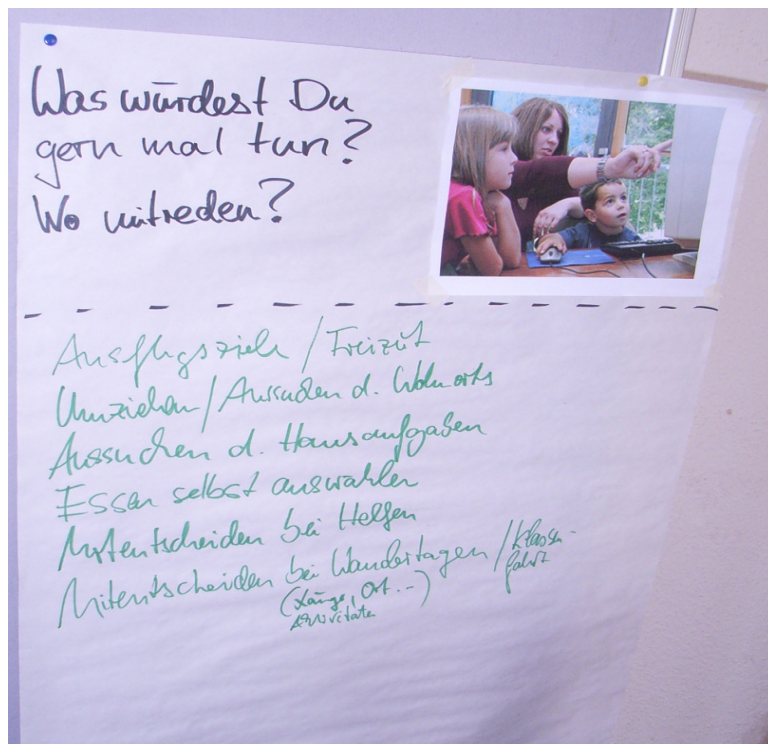 Was würdest Du
gern mal tun?
Wo mitreden?
Ausflugsziele / Freizeit
Umziehen / Aussuchen d. Wohnorts
Aussuchen d. Hausaufgaben
Essen selbst auswählen
Mitentscheiden bei Helfen
Mitentscheiden bei Wandertagen / Klassen-
fahrt
(Länge, Ort ...)
Aktivitäten